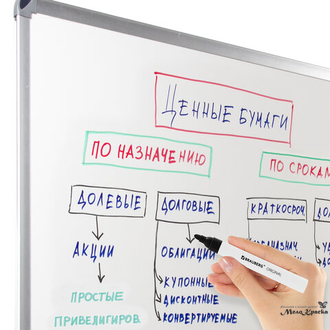 ЦЕННЫЕ БУМАГИ
ПО НАЗНАЧЕНИЮ
ПО СРОКАМ
ДОЛЕВЫЕ
ДОЛГОВЫЕ
КРАТКОСРОЧ.
АКЦИИ
ОБЛИГАЦИИ
КУПОННЫЕ
ДИСКОНТНЫЕ
КОНВЕРТИРУЕМЫЕ
ПРОСТЫЕ
ПРИВЕЛИГИРОВ.
BRAUBERG ORIGINAL
Мела Краски